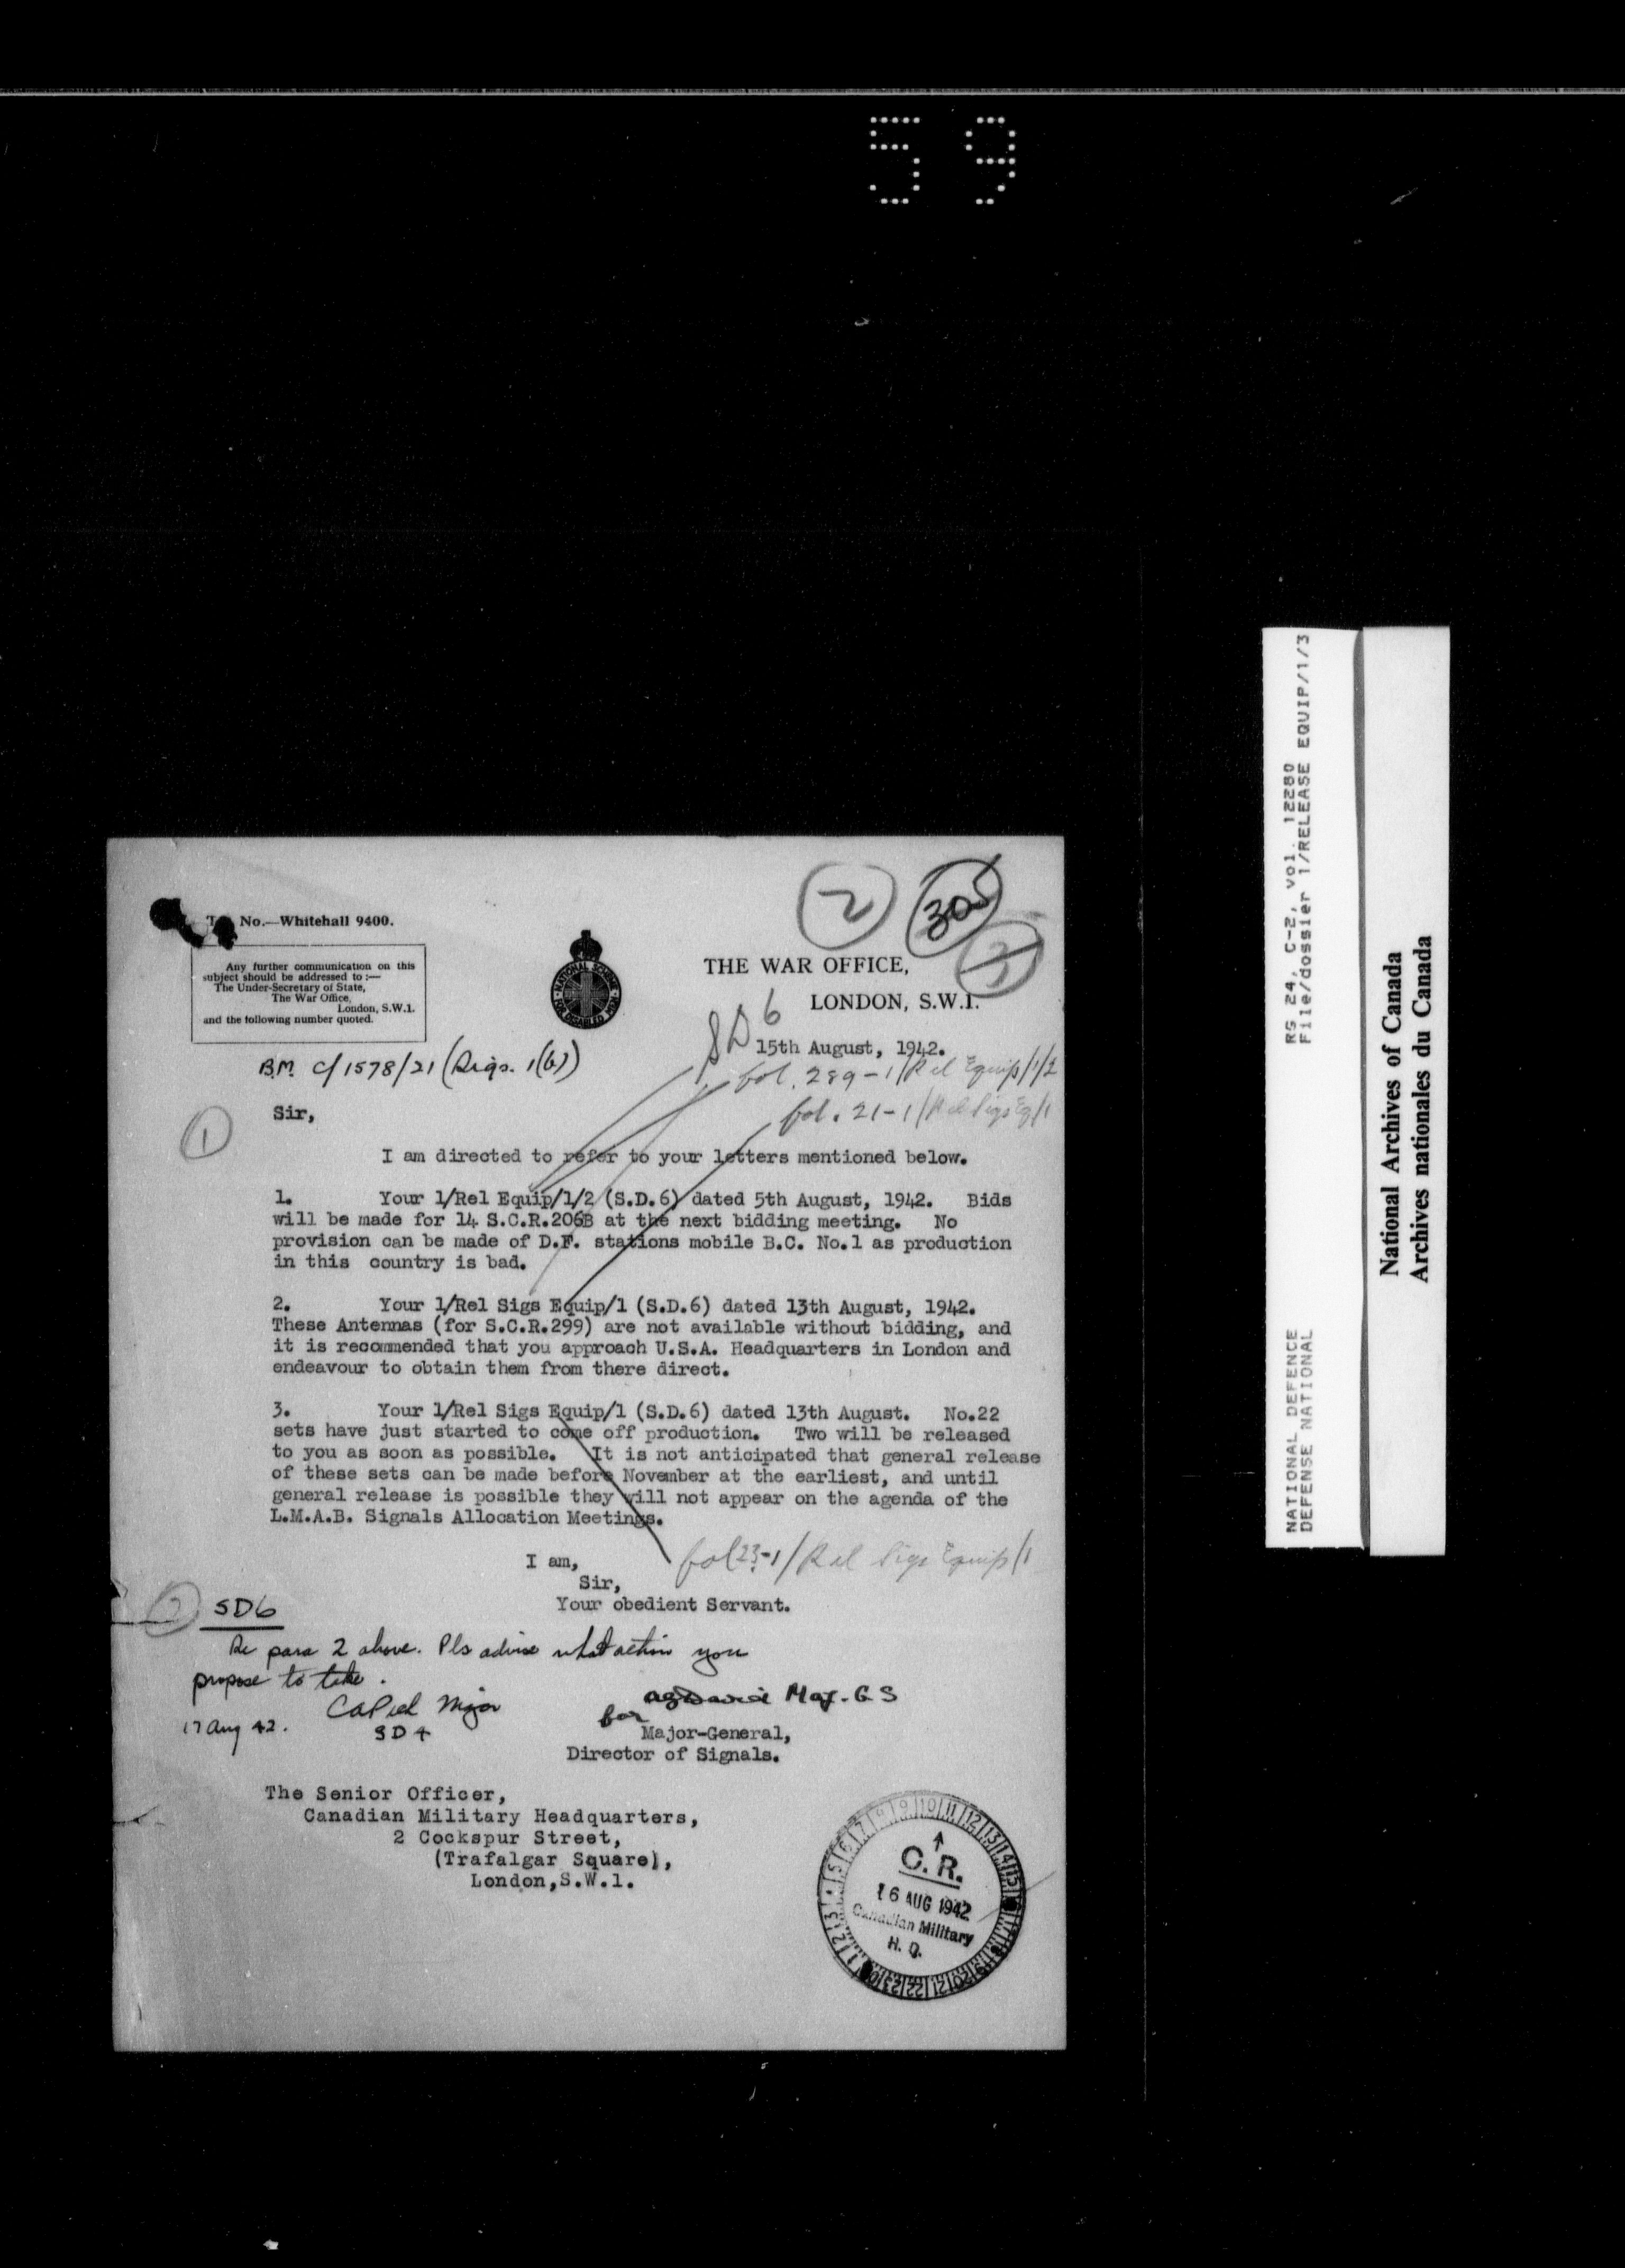 59
2
305
Tel. No.—Whitehall 9400.
Any further communication on this
subject should be addressed to :—
The Under-Secretary of State,
The War Office,
London, S.W.1.
and the following number quoted.
NATIONAL SCHEME
FOR DISABLED MEN
THE WAR OFFICE,
LONDON, S.W.1.
SD6
15th August, 1942.
B.M. C/1578/21 (Sigs. 1(b))
fol. 289-1/Rel Equip/1/2
fol. 21-1/Rel Sigs Eq/1
1
Sir,
I am directed to refer to your letters mentioned below.
1. Your 1/Rel Equip/1/2 (S.D.6) dated 5th August, 1942. Bids
will be made for 14 S.C.R.206B at the next bidding meeting. No
provision can be made of D.F. stations mobile B.C. No.1 as production
in this country is bad.
2. Your 1/Rel Sigs Equip/1 (S.D.6) dated 13th August, 1942.
These Antennas (for S.C.R.299) are not available without bidding, and
it is recommended that you approach U.S.A. Headquarters in London and
endeavour to obtain them from there direct.
3. Your 1/Rel Sigs Equip/1 (S.D.6) dated 13th August. No.22
sets have just started to come off production. Two will be released
to you as soon as possible. It is not anticipated that general release
of these sets can be made before November at the earliest, and until
general release is possible they will not appear on the agenda of the
L.M.A.B. Signals Allocation Meetings.
fol 23-1/Rel Sigs Equip/1
I am,
Sir,
Your obedient Servant.
2 SD6
Re para 2 above. Pls advise what action you
propose to take.
Major
17 Aug 42. SD4
Maj. G S
for
Major-General,
Director of Signals.
The Senior Officer,
Canadian Military Headquarters,
2 Cockspur Street,
(Trafalgar Square),
London,S.W.1.
C. R.
16 AUG 1942
Canadian Military
H. Q.
NATIONAL DEFENCE RG 24, C-2, vol. 12280
DEFENSE NATIONAL File/dossier 1/RELEASE EQUIP/1/3
National Archives of Canada
Archives nationales du Canada